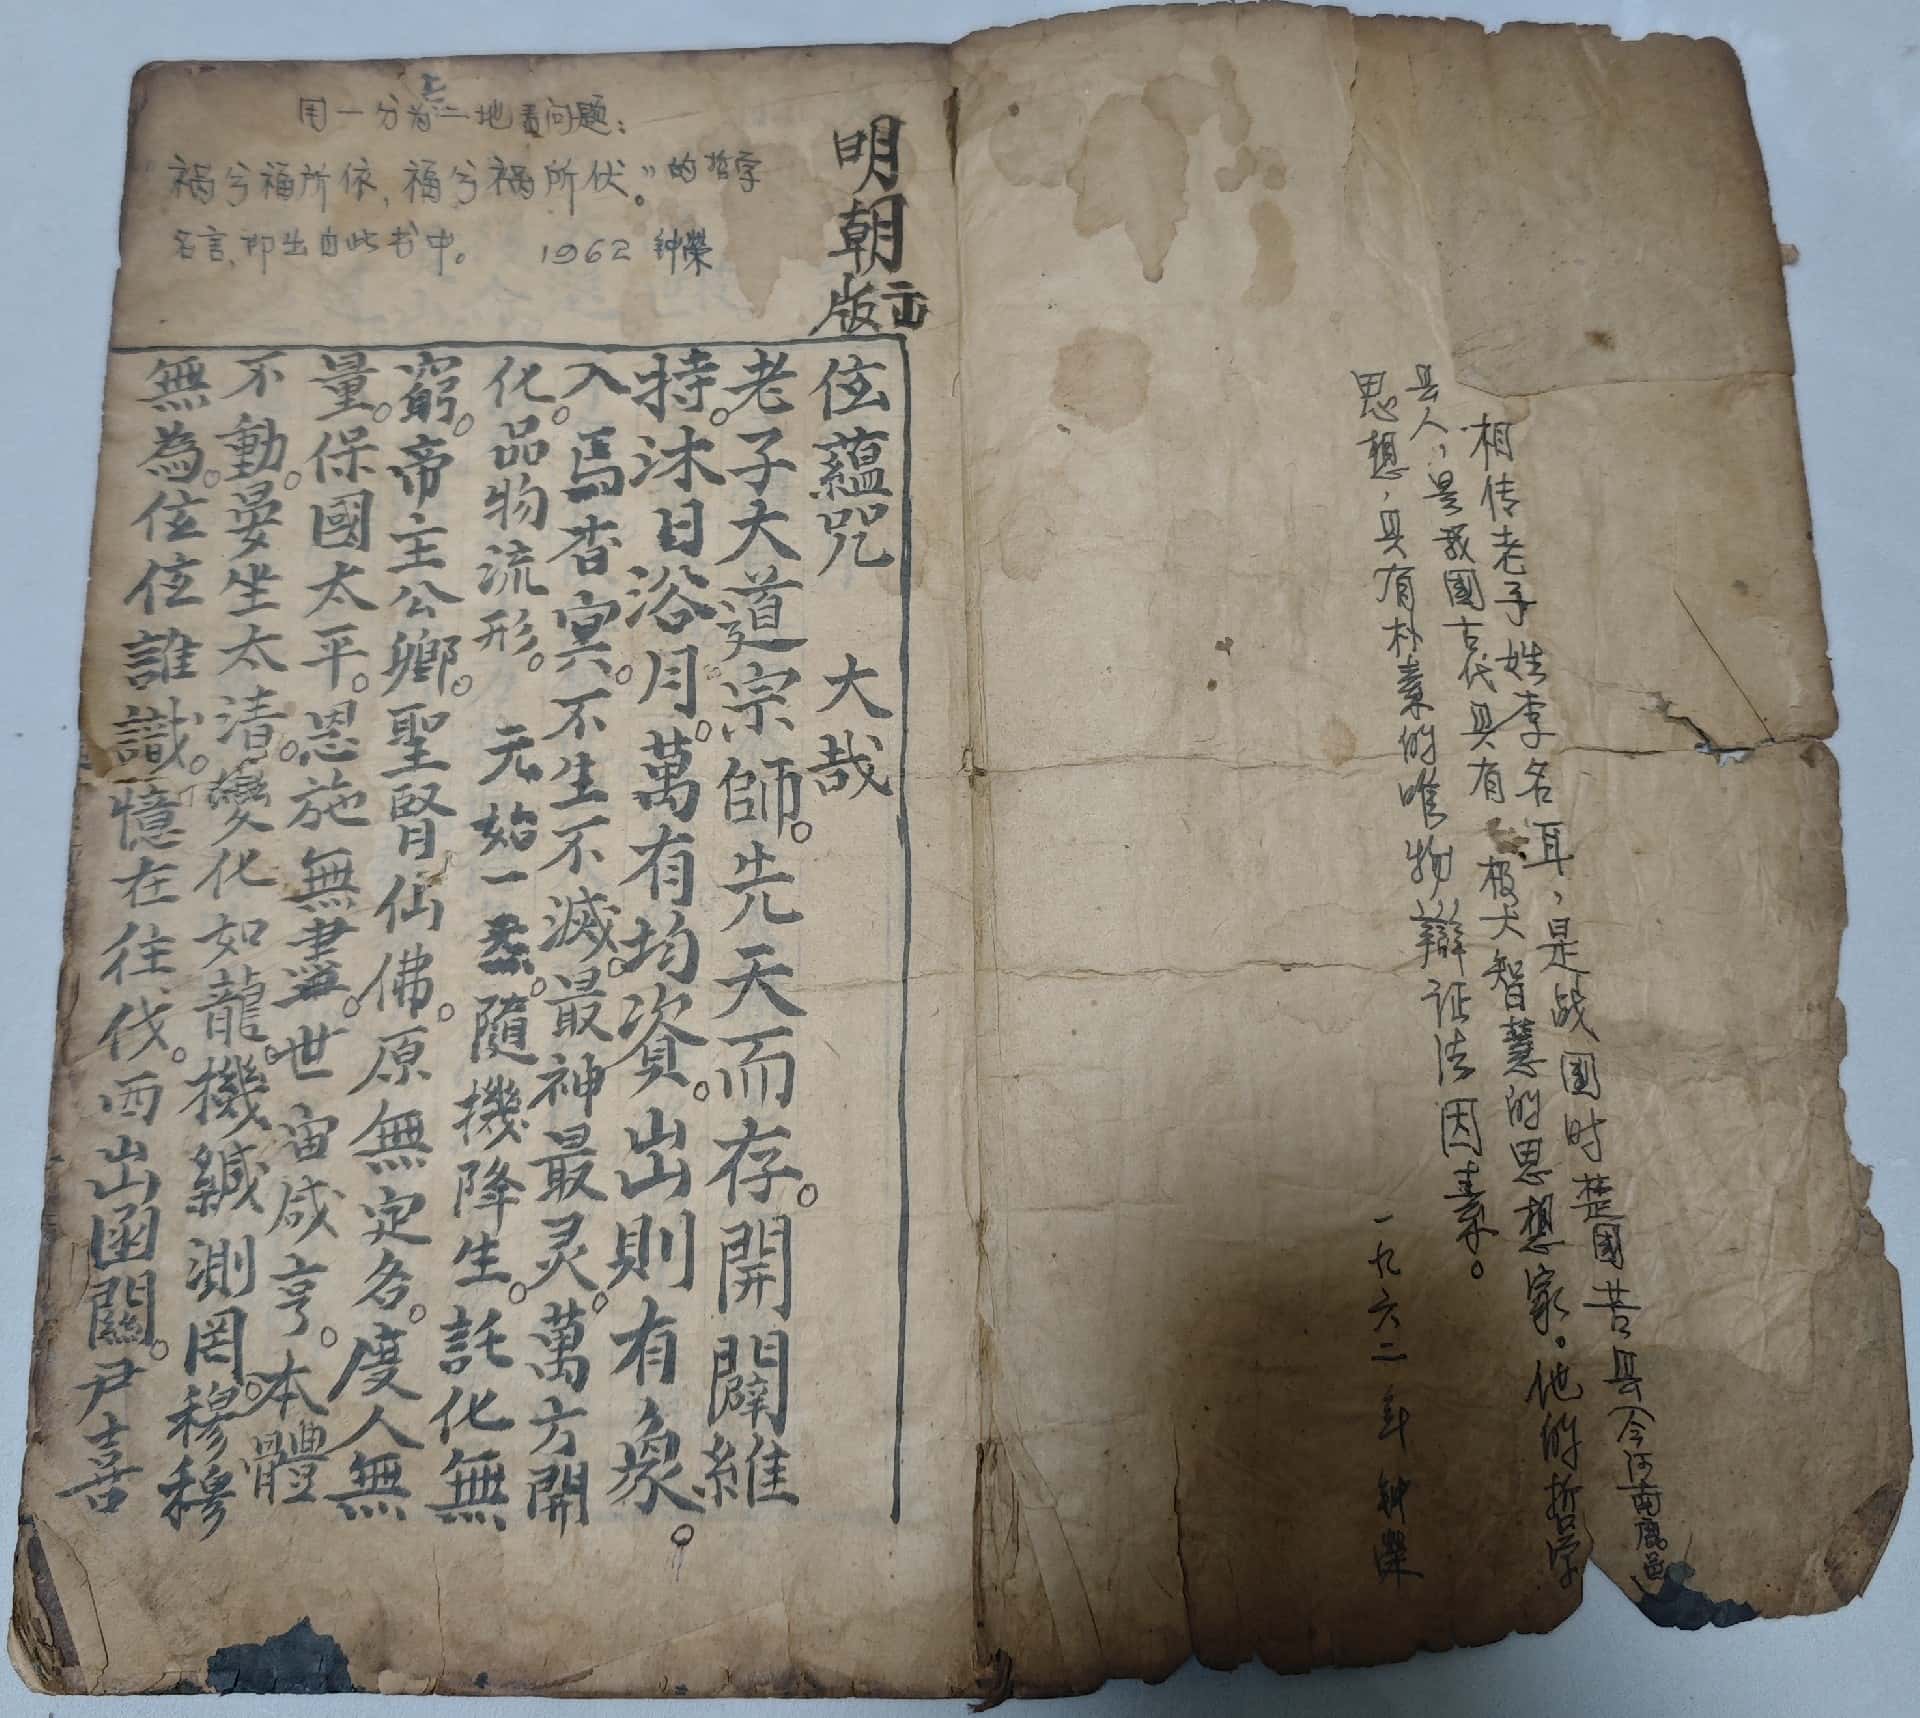 相传老子姓李名耳，是战国时楚国苦县（今河南鹿邑）
县人，是我國古代具有极大智慧的思想家。他的哲学
思想，具有朴素的唯物辯证法因素。
一九六二年 钟荣
用一分为二地看问题：
祸兮福所依，福兮祸所伏。”的哲学
名言，即出自此书中。 1962 钟榮
明朝
版
伭蘊咒 大哉
老子大道宗師。先天而存。開闢維
持。沐日浴月。萬有均資。出則有象。
入焉杳冥。不生不滅。最神最灵。萬方開
化。品物流形。元始一炁。隨機降生。託化無
窮。帝主公卿。聖賢仙佛。原無定名。度人無
量。保國太平。恩施無盡。世宙咸亨。本體
不動。晏坐太清。變化如龍。機緘測罔。穆穆
無為。伭伭誰識。憶在往伐。西出函關。尹喜